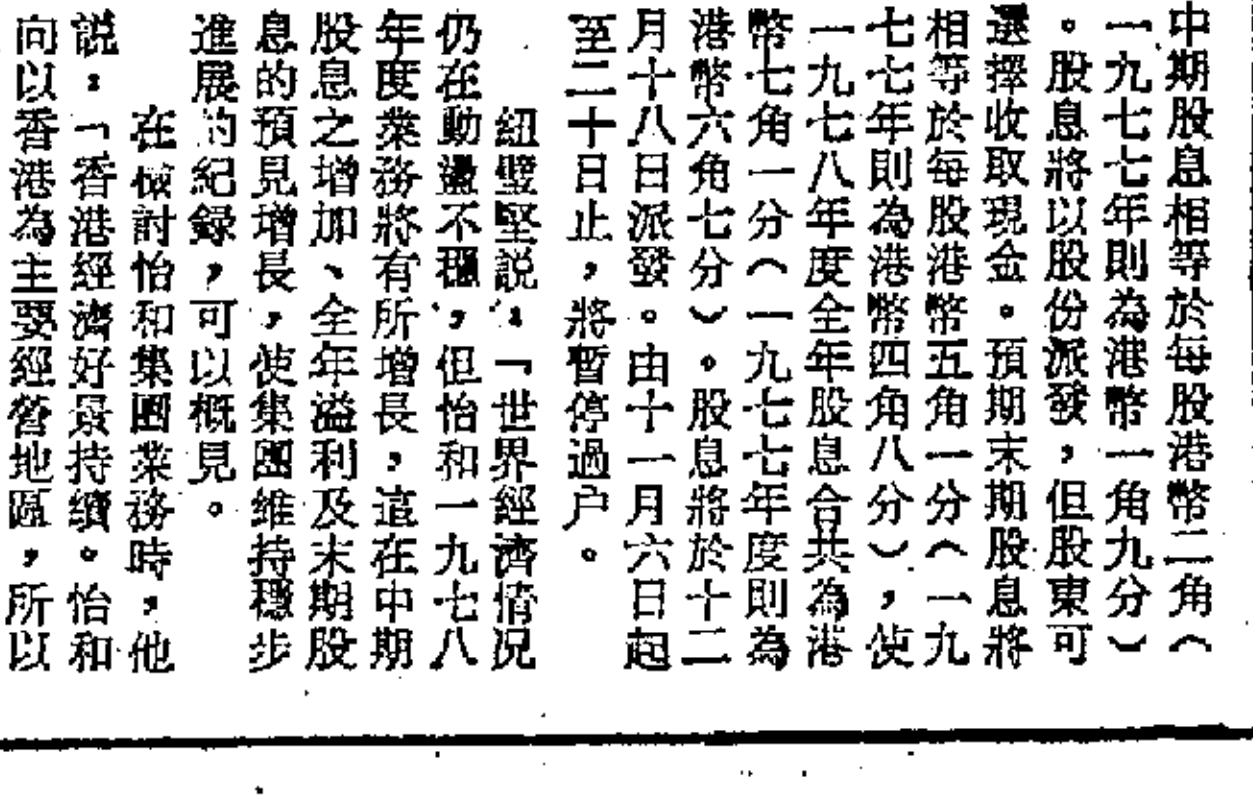 中期股息相等於每股港幣二角︵
一九七七年則為港幣一角九分︶
。股息將以股份派發，但股東可
選擇收取現金。預期末期股息將
相等於每股港幣五角一分︵一九
七七年則為港幣四角八分︶，使
一九七八年度全年股息合共為港
幣七角一分︵一九七七年度則為
港幣六角七分︶。股息將於十二
月十八日派發。由十一月六日起
至二十日止，將暫停過户。
紐璧堅説：﹁世界經濟情况
仍在動盪不穩，但怡和一九七八
年度業務將有所增長，這在中期
股息之增加、全年溢利及末期股
息的預見增長，使集團維持穩步
進展的紀録，可以概見。
在檢討怡和集團業務時，他
説：﹁香港經濟好景持續。怡和
向以香港為主要經營地區，所以